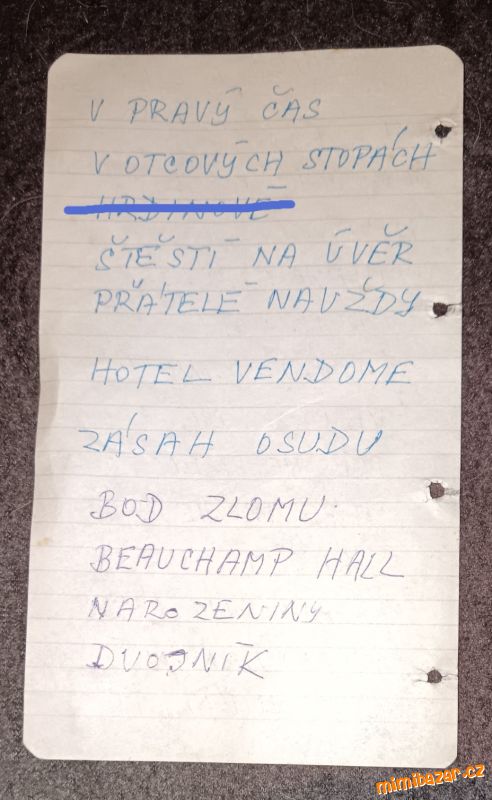 V PRAVÝ ČAS
V OTCOVÝCH STOPÁCH
HRDINOVÉ
ŠTĚSTÍ NA ÚVĚR
PŘÁTELÉ NAVŽDY
HOTEL VENDOME
ZÁSAH OSUDU
BOD ZLOMU
BEAUCHAMP HALL
NAROZENINY
DVOJNÍK
mimibazar.cz